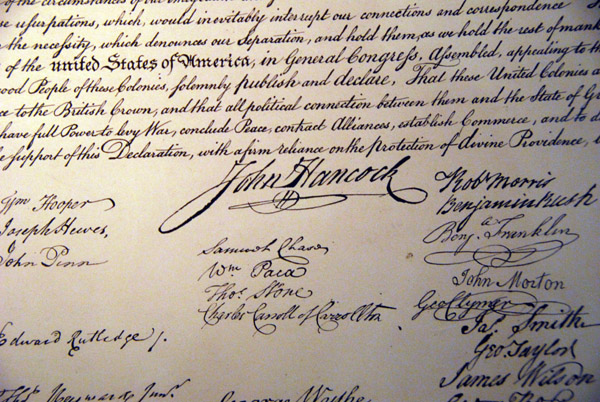 se usurpations, which, would inevitably interrupt our connections and correspondence
the necessity, which denounces our Separation, and hold them, as we hold the rest of mank
of the united States of America, in General Congress, Assembled, appealing to the
ood People of these Colonies, solemnly publish and declare, That these United Colonies a
ce to the British Crown, and that all political connection between them and the State of Gr
have full Power to levy War, conclude Peace, contract Alliances, establish Commerce, and to d
e support of this Declaration, with a firm reliance on the protection of divine Providence,
John Hancock
Wm Hooper
Joseph Hewes,
John Penn
Edward Rutledge /.
Samuel Chase
Wm. Paca
Thos. Stone
Charles Carroll of Carrollton
Robt Morris
Benjamin Rush
Benj. Franklin
John Morton
Geo Clymer
Jas. Smith
Geo. Taylor
James Wilson
Thos Heyward Junr.
George Wythe